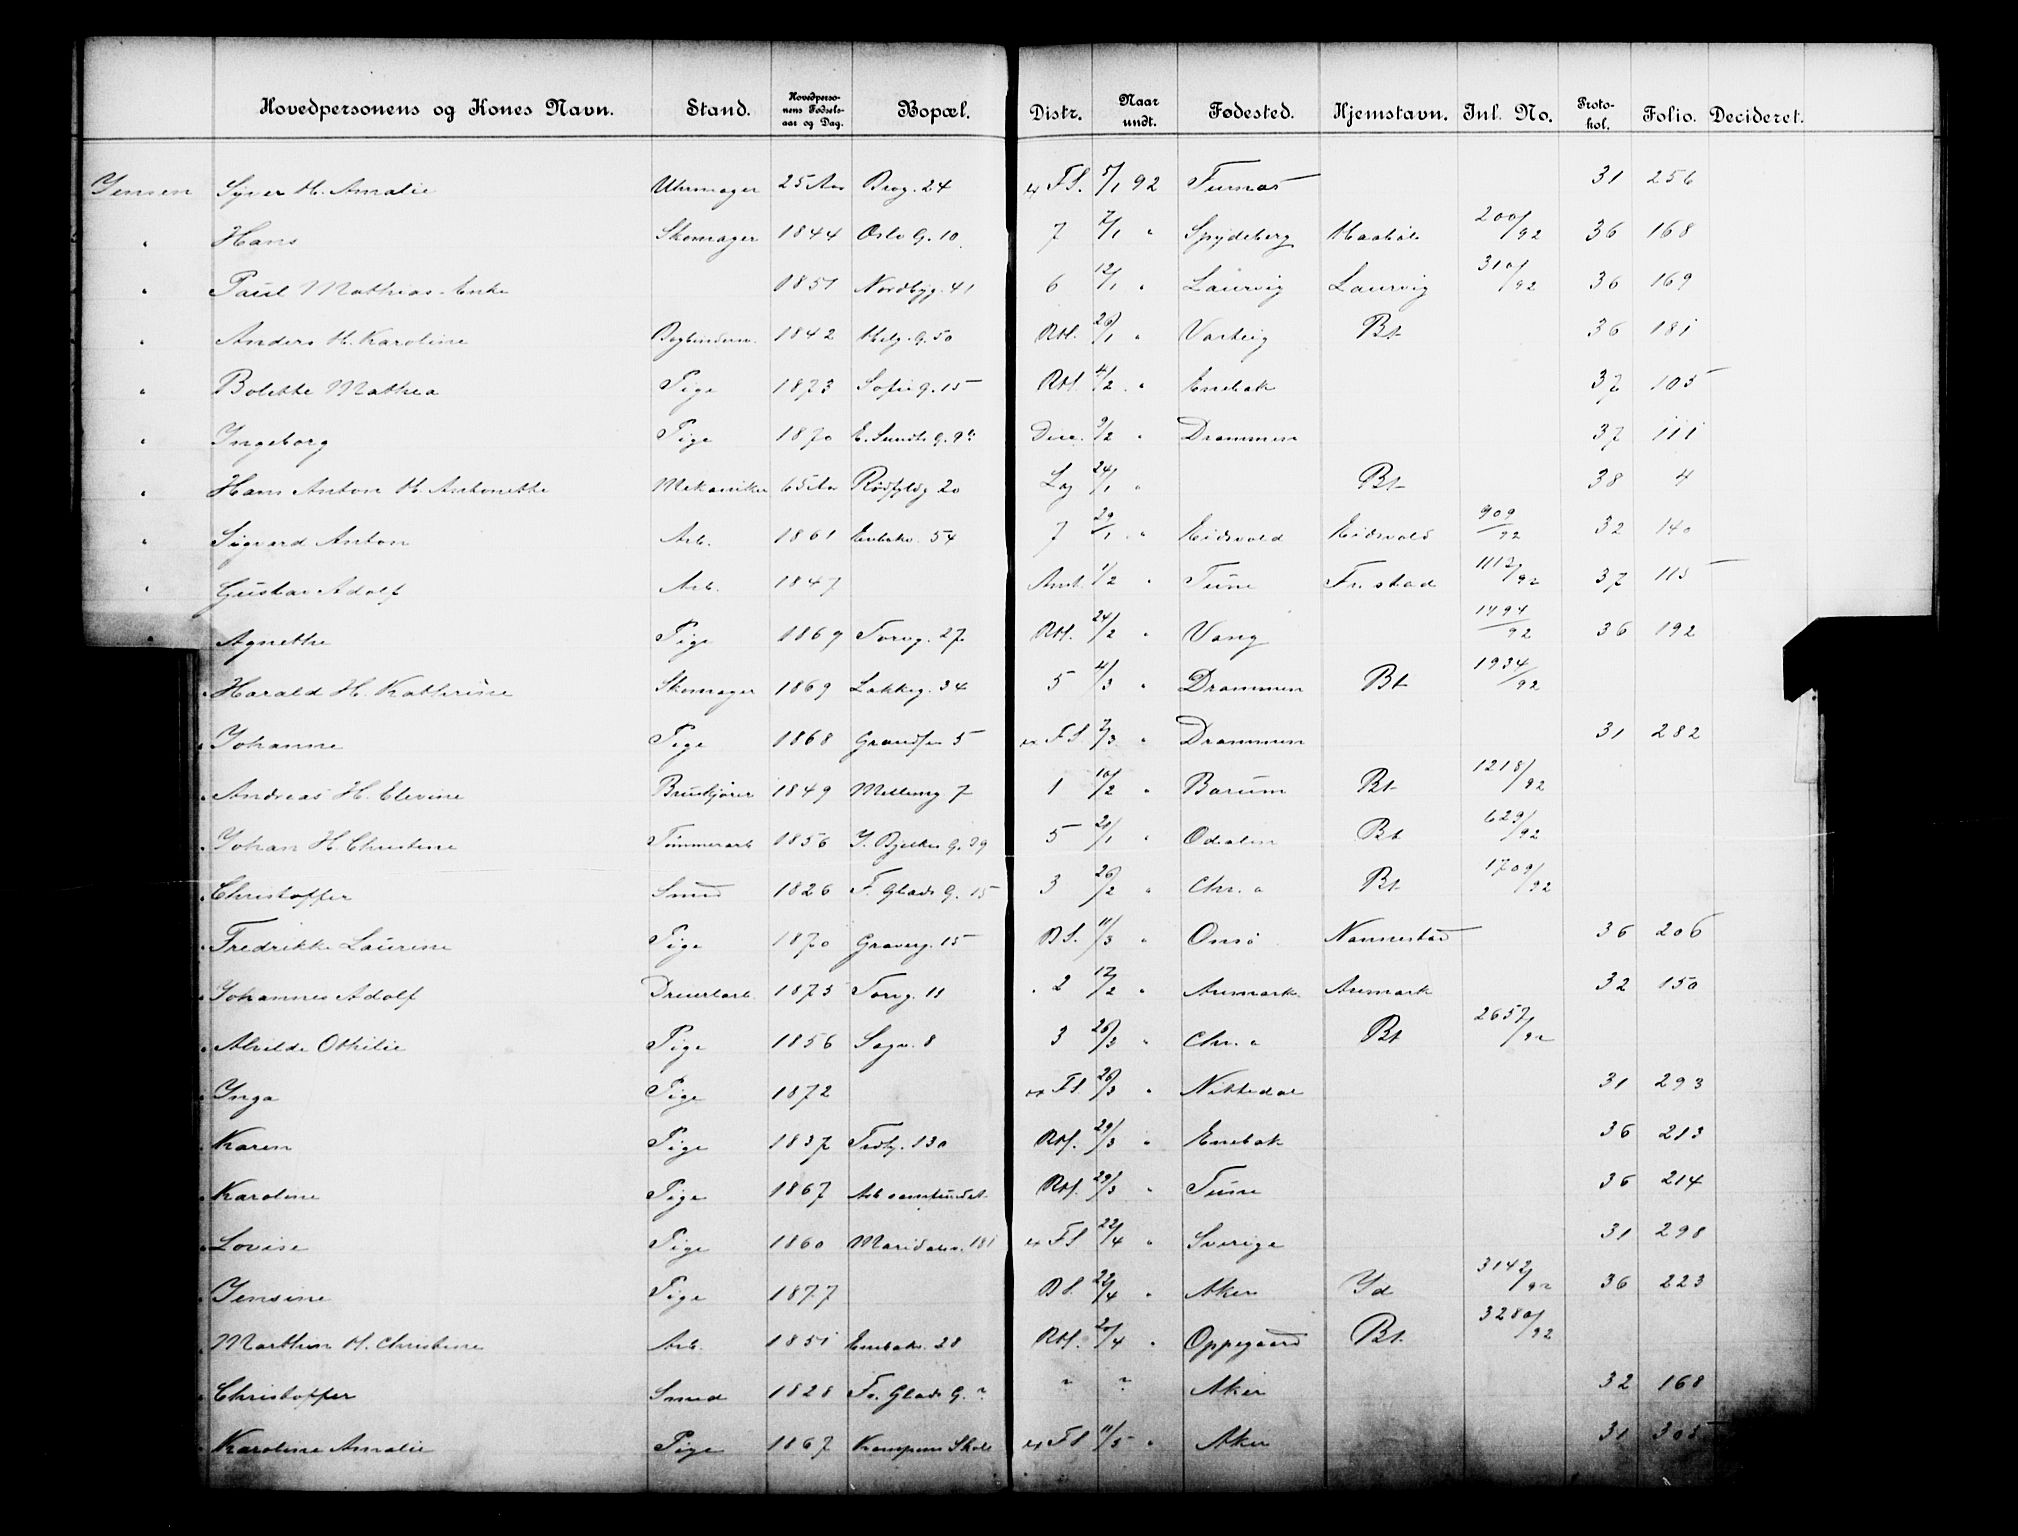 Hovedpersonens og Kones Navn. Stand. Hovedperso-nens Fødsels-aar og Dag. Bopæl. Distr. Naar undt. Fødested. Hjemstavn. Inl. No. Proto-kol. Folio. Decideret.
Jensen Syver H. Amalie Uhrmager 25 Aar Brog. 24 FS. 5/1 92 Furnæs 31 256
" Hans Skomager 1844 Oslo G. 10 7 7/1 " Spydeberg Haabøl 200/92 36 168
" Paul Mathias Enke 1851 Nordbyg. 41 6 12/1 " Laurvig Laurvig 310/92 36 169
" Anders H. Karoline Bogbindersv. 1842 Helg. G. 50 RH. 26/1 " Varteig Bt 36 181
" Bolette Mathea Pige 1873 Sofie G. 15 RH. 4/2 " Enebak 37 105
" Ingeborg Pige 1870 E. Sundts G. 9 b Diac. 9/2 " Drammen 37 111
" Hans Anton H. Antonette Mekaniker 65 Aar Rødfyldg 20 Lag 24/1 " Bt 38 4
" Sigvard Anton Arb. 1861 Enebakv. 54 7 29/1 " Eidsvold Eidsvold 909/92 32 140
" Gustav Adolf Arb. 1847 Amt. 1/2 " Tune Fr.stad 1112/92 37 115
" Agnethe Pige 1869 Torvg. 27 RH. 24/2 " Vang 1494/92 36 192
" Harald H. Kathrine Skomager 1869 Lakkeg. 34 5 4/3 " Drammen Bt 1934/92
" Johanne Pige 1868 Grændsen 5 FS 7/3 " Drammen 31 282
" Andreas H. Elevine Bruskjører 1849 Mellemg 7 1 10/2 " Barum Bt 1218/92
" Johan H. Christine Tømmerarb 1856 J. Bjelkes G. 39 5 21/1 " Odalen Bt 629/92
" Christoffer Smed 1826 F. Glads G. 15 3 26/2 " Chr.a Bt 1709/92
" Fredrikke Laurine Pige 1870 Graverg. 15 BS. 11/3 " Onsø Nannestad 36 206
" Johannes Adolf Dreierlært. 1875 Torvg. 11 2 17/2 " Aremark Aremark 32 150
" Alvilde Othilie Pige 1856 Sagv. 8 3 26/3 " Chr.a Bt 2657/92
" Inga Pige 1872 FS 26/3 " Nittedal 31 293
" Karen Pige 1837 Trdhj. 130 RH. 29/3 " Enebak 36 213
" Karoline Pige 1867 Arb samfundet RH. 29/3 " Tune 36 214
" Lovise Pige 1860 Maridalsv. 181 FS 22/4 " Sverige 31 298
" Jensine Pige 1877 BS. 22/4 " Aker Yd 3142/92 36 223
" Marthin H. Christine Arb. 1851 Enebakv. 28 RH. 20/4 " Oppegaard Bt. 3280/92
" Christoffer Smed 1828 Fr. Glads G. ? ? ? Aker 32 168
" Karoline Amalie Pige 1867 Kampens Skole FS 11/5 " Aker 31 305